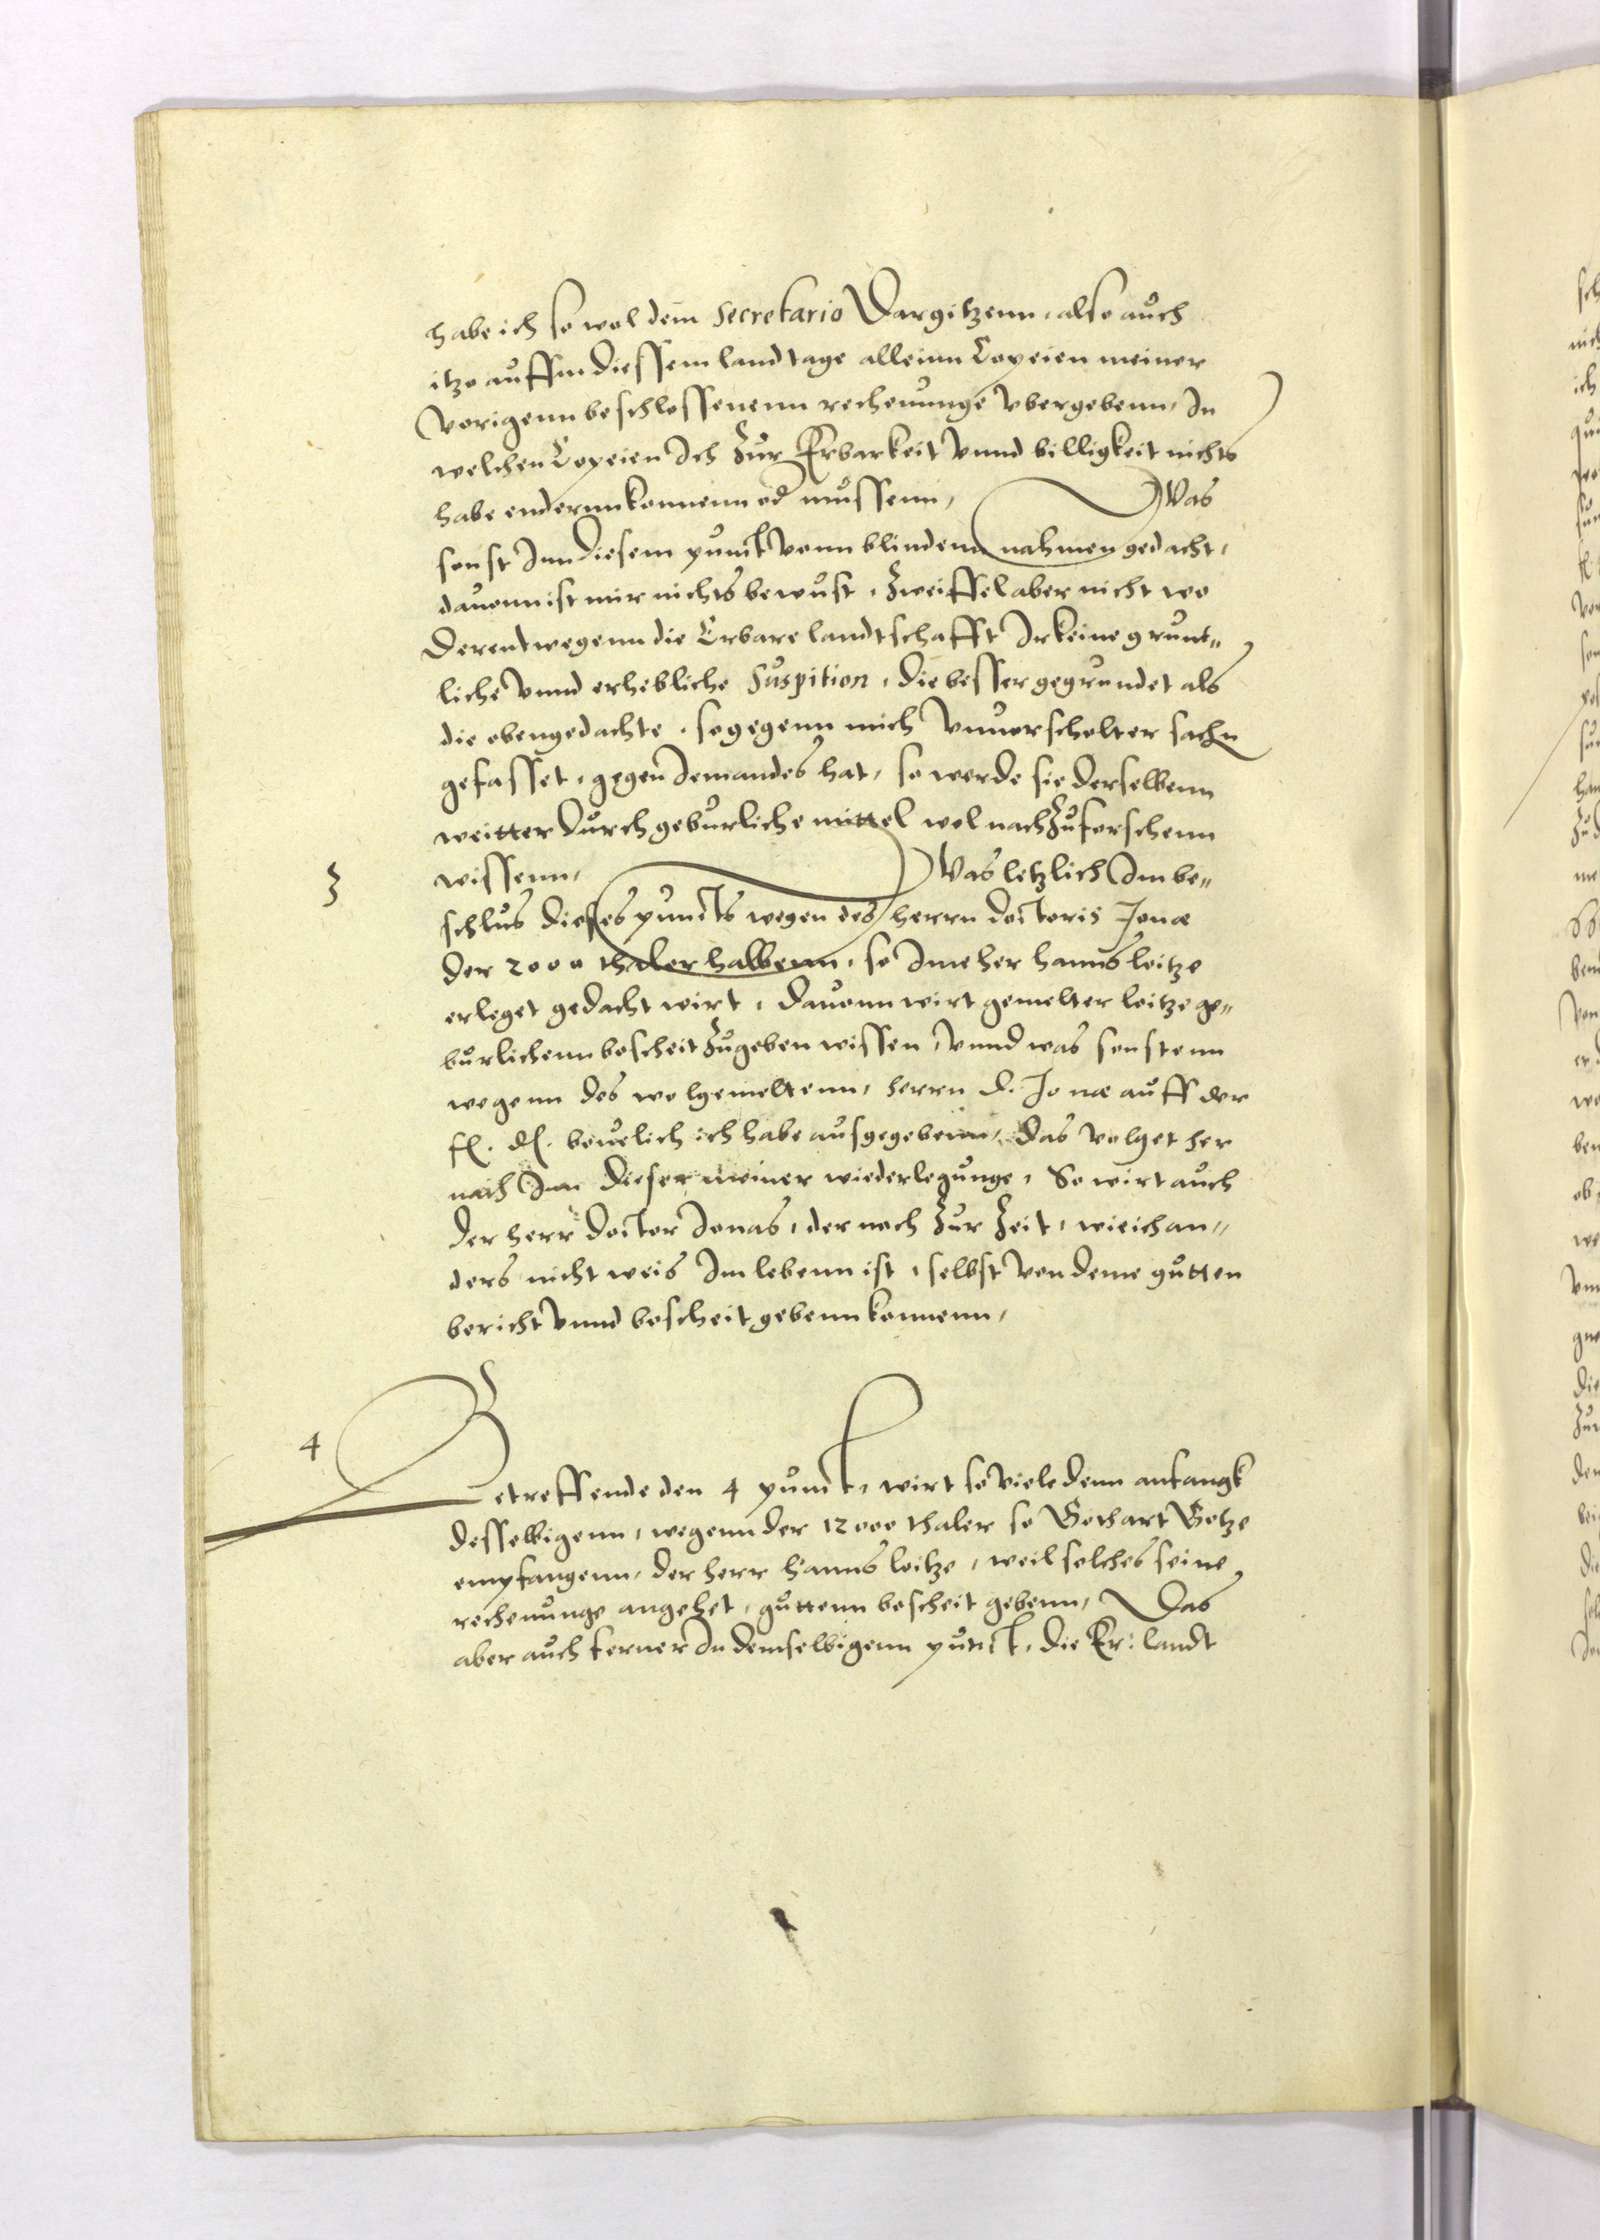 habe ich so wol dem Secretario Dargitzenn, also auch
itzo auffm diessem landtage alleinn Copeien meiner
vorigenn beschlossenenn rechenunge vbergebenn, In
welchen Copeien Ich zur Erbarkeit vnnd billigkeit nichts
habe endernn konnenn od mussenn, Was
sonst Inn diesem punct vonn blindenn nahmen gedacht,
dauonn ist mir nichts bewust, zweiffel aber nicht wo
derentwegenn die Erbare landtschafft Ir keine grunt„
liche vnnd erhebliche Suspition, die besser gegrundet als
die obengedachte, so gegenn mich vnuorscholter sachn
gefasset, gegen Iemandes hat, so werde sie derselbenn
weitter durch geburliche mittel wol nach zuforschenn
wissenn, Was letzlich Im be„
3
schlus dieses puncts wegen des herrn doctoris Jonæ
der 2000 thaler halbenn, so Ime her hanns loitze
erleget gedacht wirt, dauonn wirt gemelter loitze ge„
burlichenn bescheit zugeben wissen, vnnd was sonstenn
wegenn des wolgemeltenn, herrn d. Jonæ auff der
fl. dl. beuelich ich habe ausgegebenn, das volget her
nach Inn dieser meiner wiederlegunge, So wirt auch
der herr doctor Jonas, der noch zur zeit, wie ich an„
ders nicht weis Im lebenn ist, selbst von deme gutten
bericht vnnd bescheit gebenn konnenn,
4
Betreffende den 4 punct, wirt so viele denn anfangk
desselbigenn, wegenn der 12000 thaler so Gothart Gotze
empfangenn, der herr hanns loitze, weil solches seine
rechenunge angehet, guttenn bescheit gebenn, Das
aber auch ferner In demselbigenn punct, die Er: landt